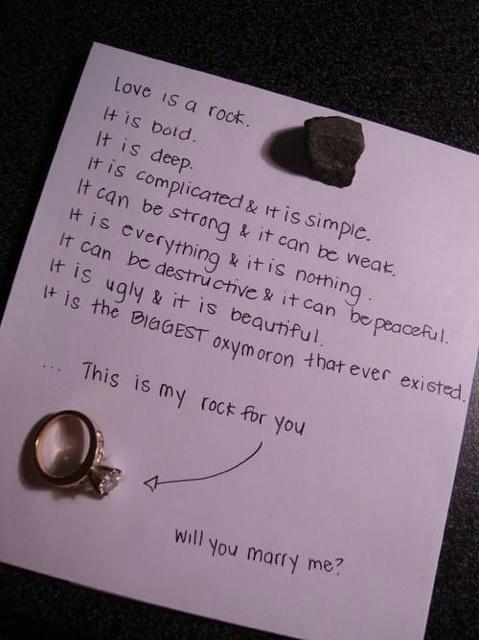 Love is a rock.
It is bold.
It is deep.
It is complicated & it is simple.
It can be strong & it can be weak.
It is everything & it is nothing.
It can be destructive & it can be peaceful.
It is ugly & it is beautiful.
It is the BIGGEST oxymoron that ever existed.
... This is my rock for you
Will you marry me?